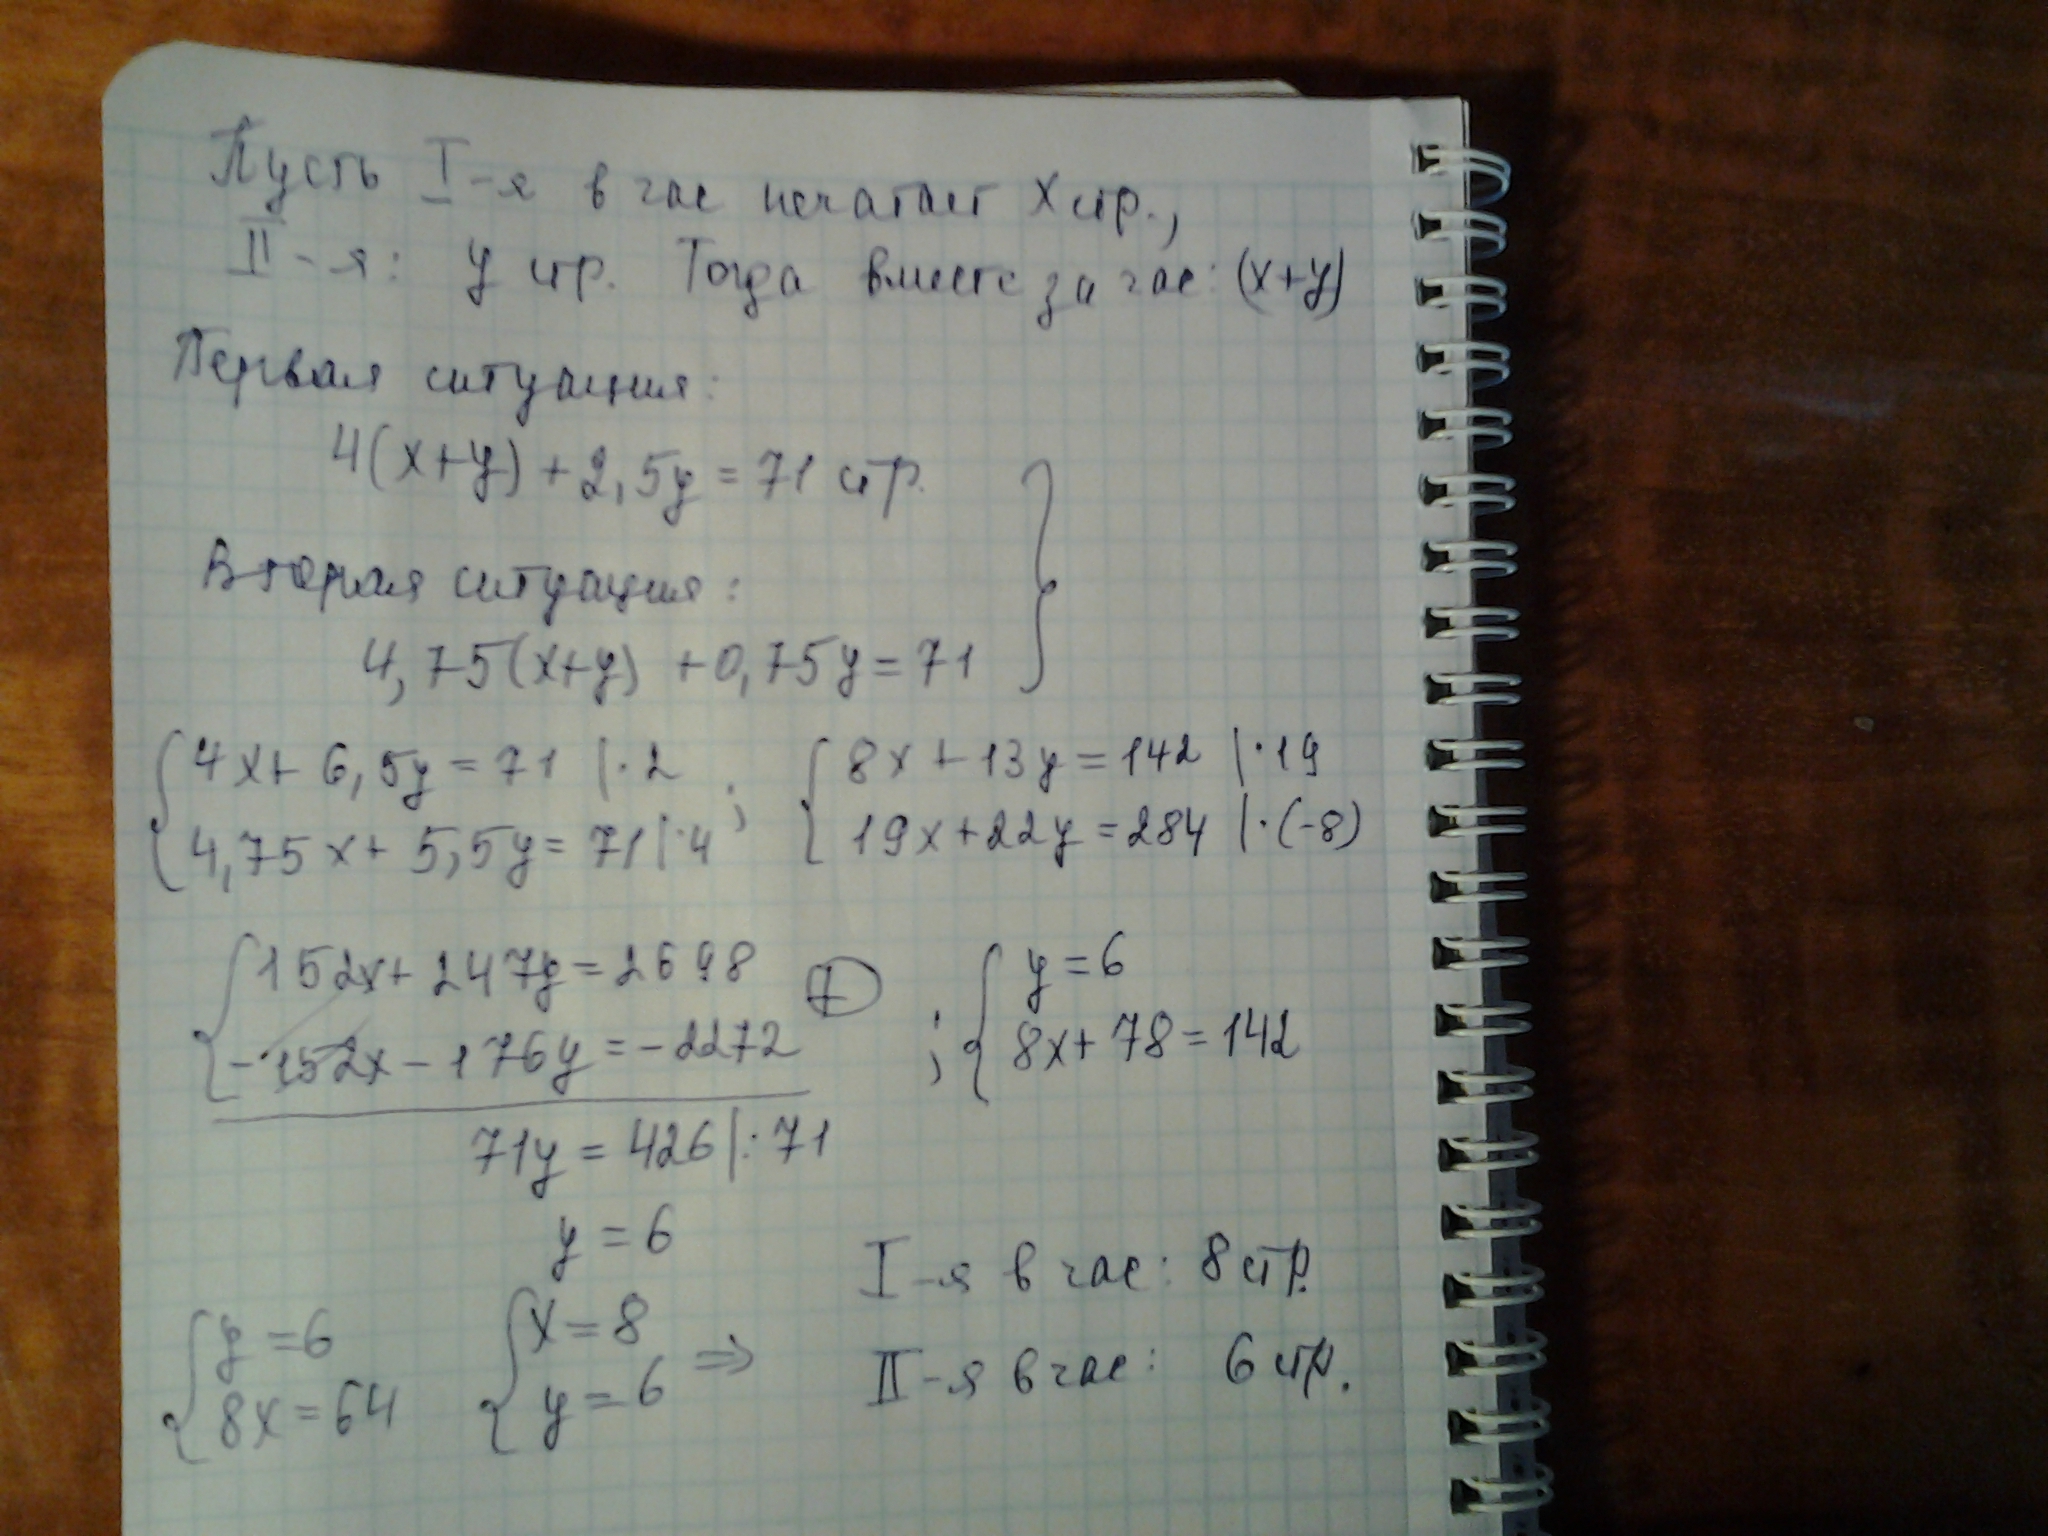 Пусть I-я в час печатает x стр.,
II-я: y стр. Тогда вместе за час: (x+y)
Первая ситуация:
4(x+y)+2,5y=71 стр.
Вторая ситуация:
4,75(x+y)+0,75y=71
{4x+6,5y=71 |·2 ; {8x+13y=142 |·19
4,75x+5,5y=71 |·4 19x+22y=284 |·(-8)
{152x+247y=2698 + ; {y=6
-152x-176y=-2272 8x+78=142
71y=426 |:71
y=6
{y=6 {x=8 => I-я в час: 8 стр.
8x=64 y=6 II-я в час: 6 стр.